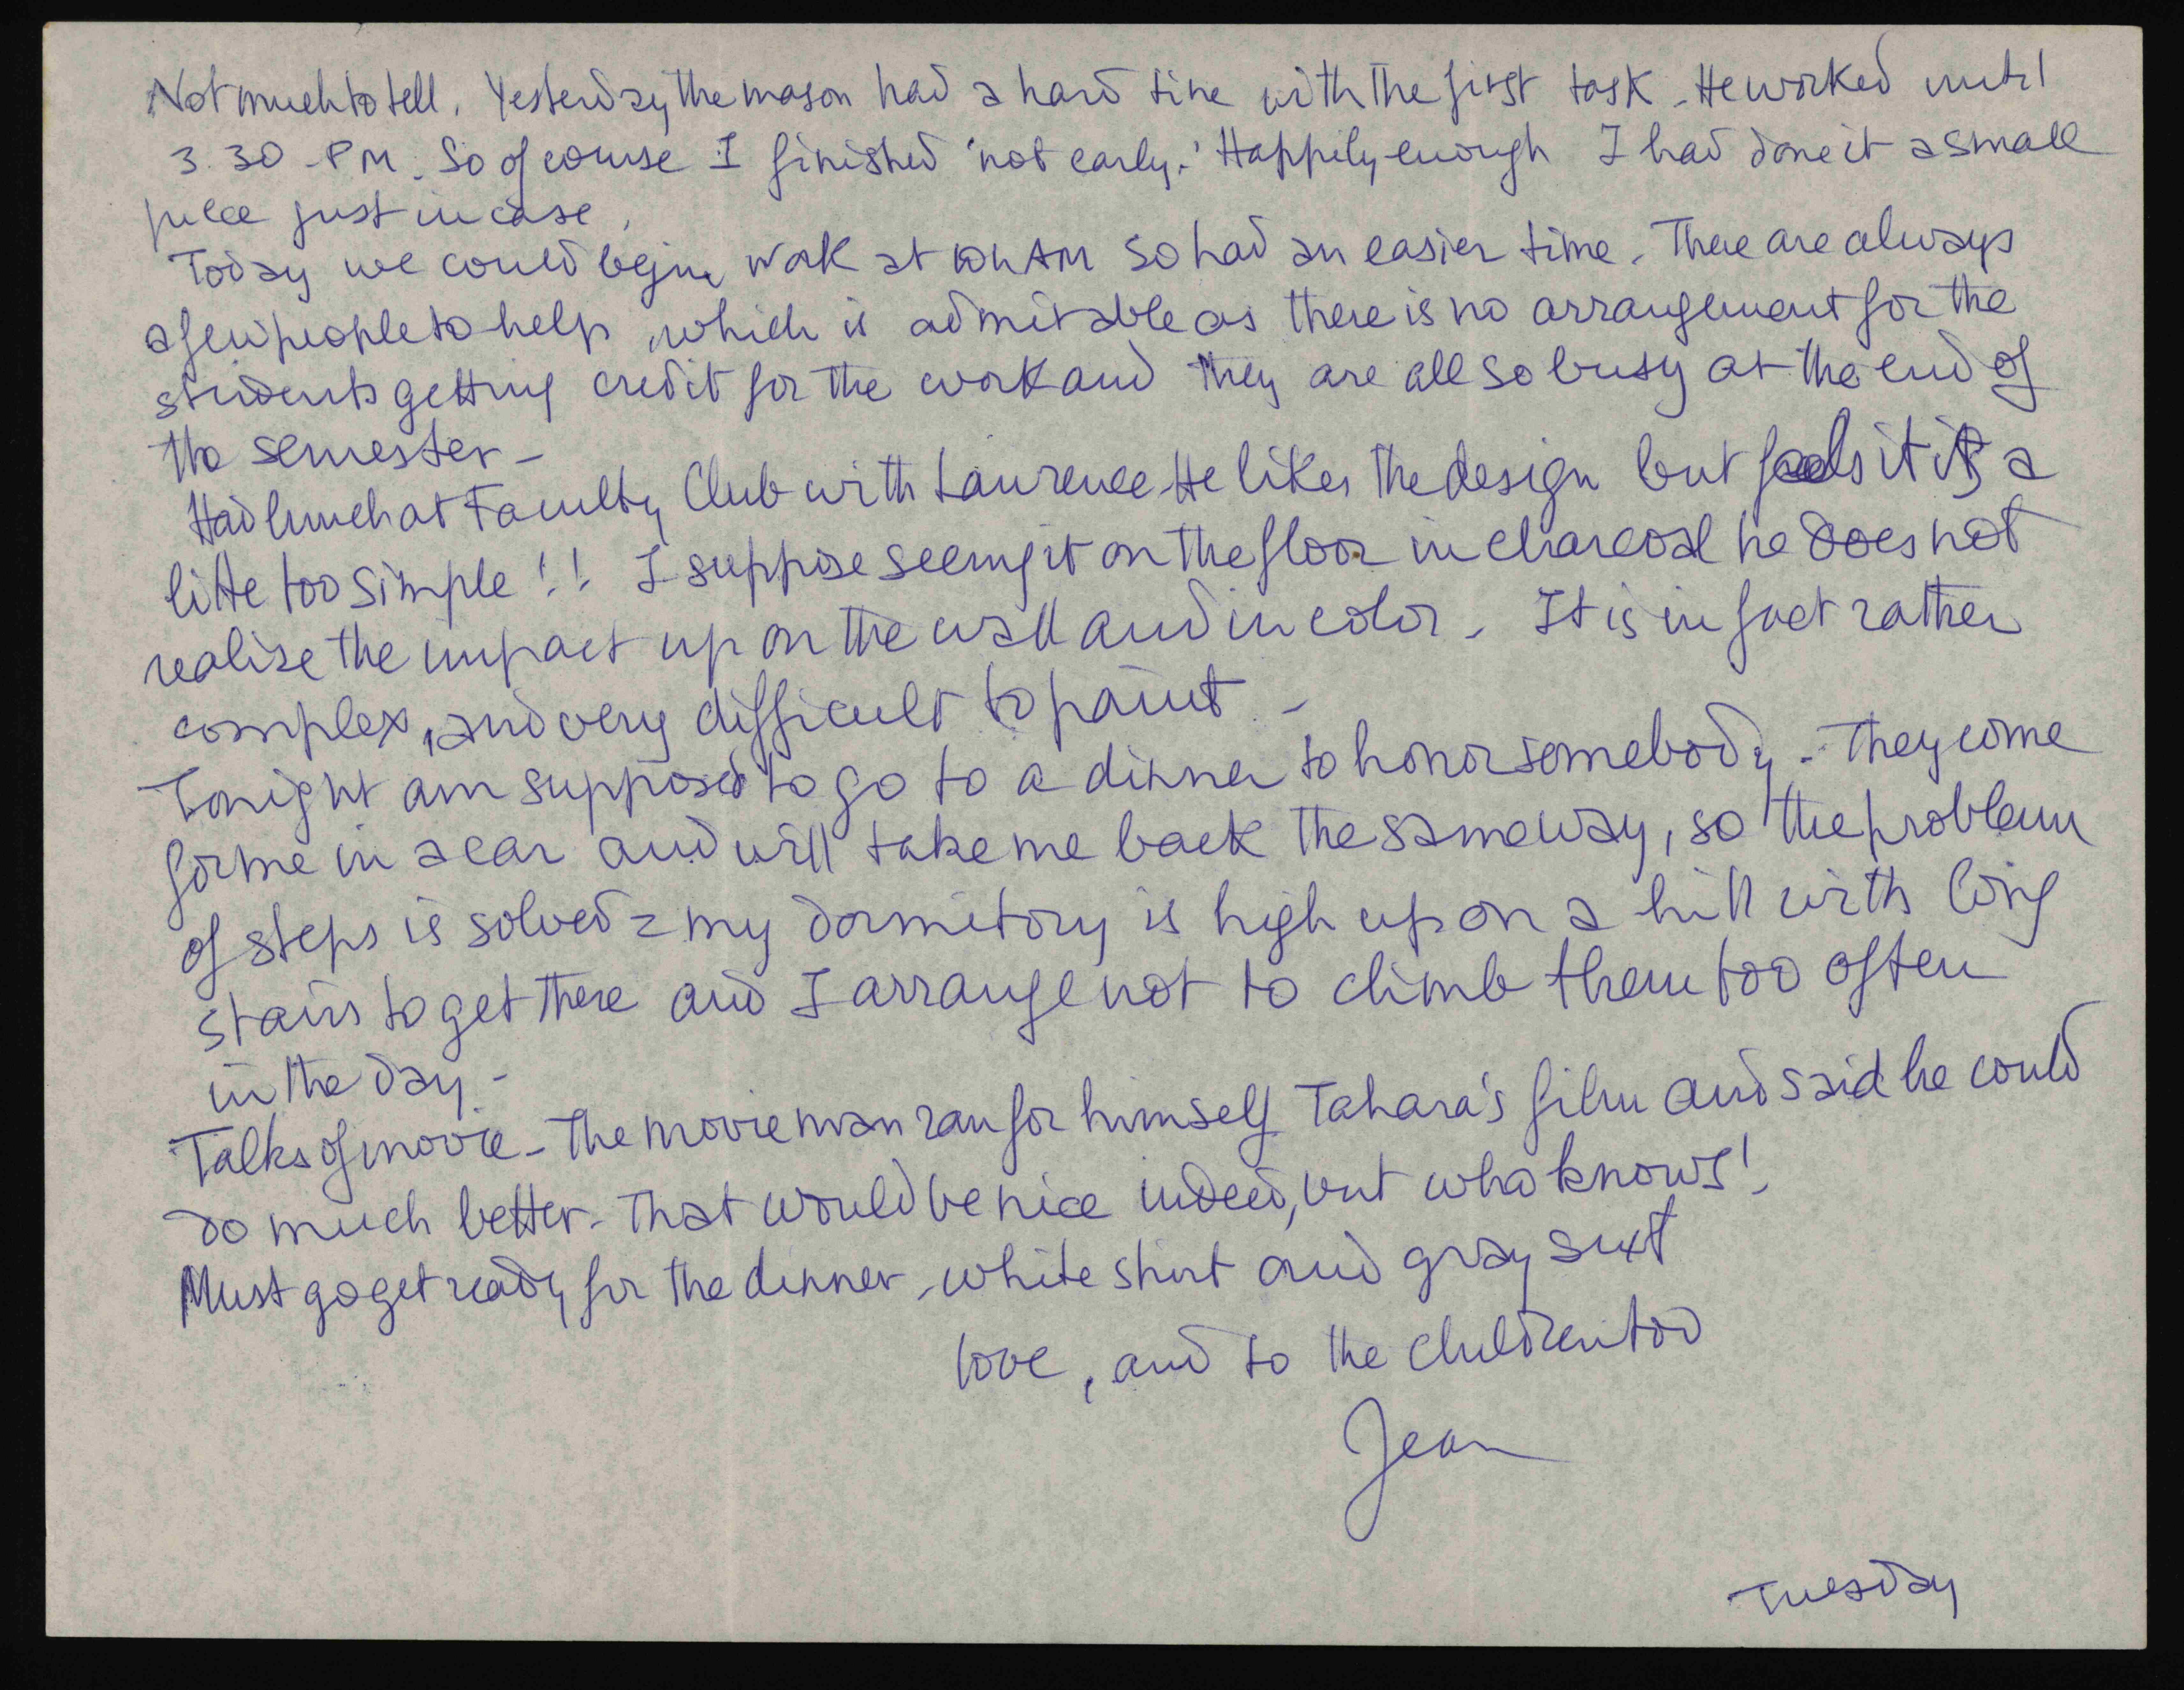 Not much to tell. Yesterday the mason had a hard time with the first task. He worked until
3.30 - PM. So of course I finished 'not early.' Happily enough I had done it a small
piece just in case.
Today we could begin work at 10h AM so had an easier time. There are always
a few people to help, which is admirable as there is no arrangement for the
students getting credit for the work and they are all so busy at the end of
the semester -
Had lunch at Faculty Club with Laurence. He likes the design but feels it is a
little too simple!! I suppose seeing it on the floor in charcoal he does not
realize the impact up on the wall and in color - It is in fact rather
complex, and very difficult to paint -
Tonight am supposed to go to a dinner to honor somebody - They come
for me in a car and will take me back the same way, so the problem
of steps is solved = my dormitory is high up on a hill with long
stairs to get there and I arrange not to climb them too often
in the day -
Talks of movie - The movie man ran for himself Tahara's film and said he could
do much better - That would be nice indeed, but who knows!
Must go get ready for the dinner - white shirt and gray suit
love, and to the children too
Jean
Tuesday